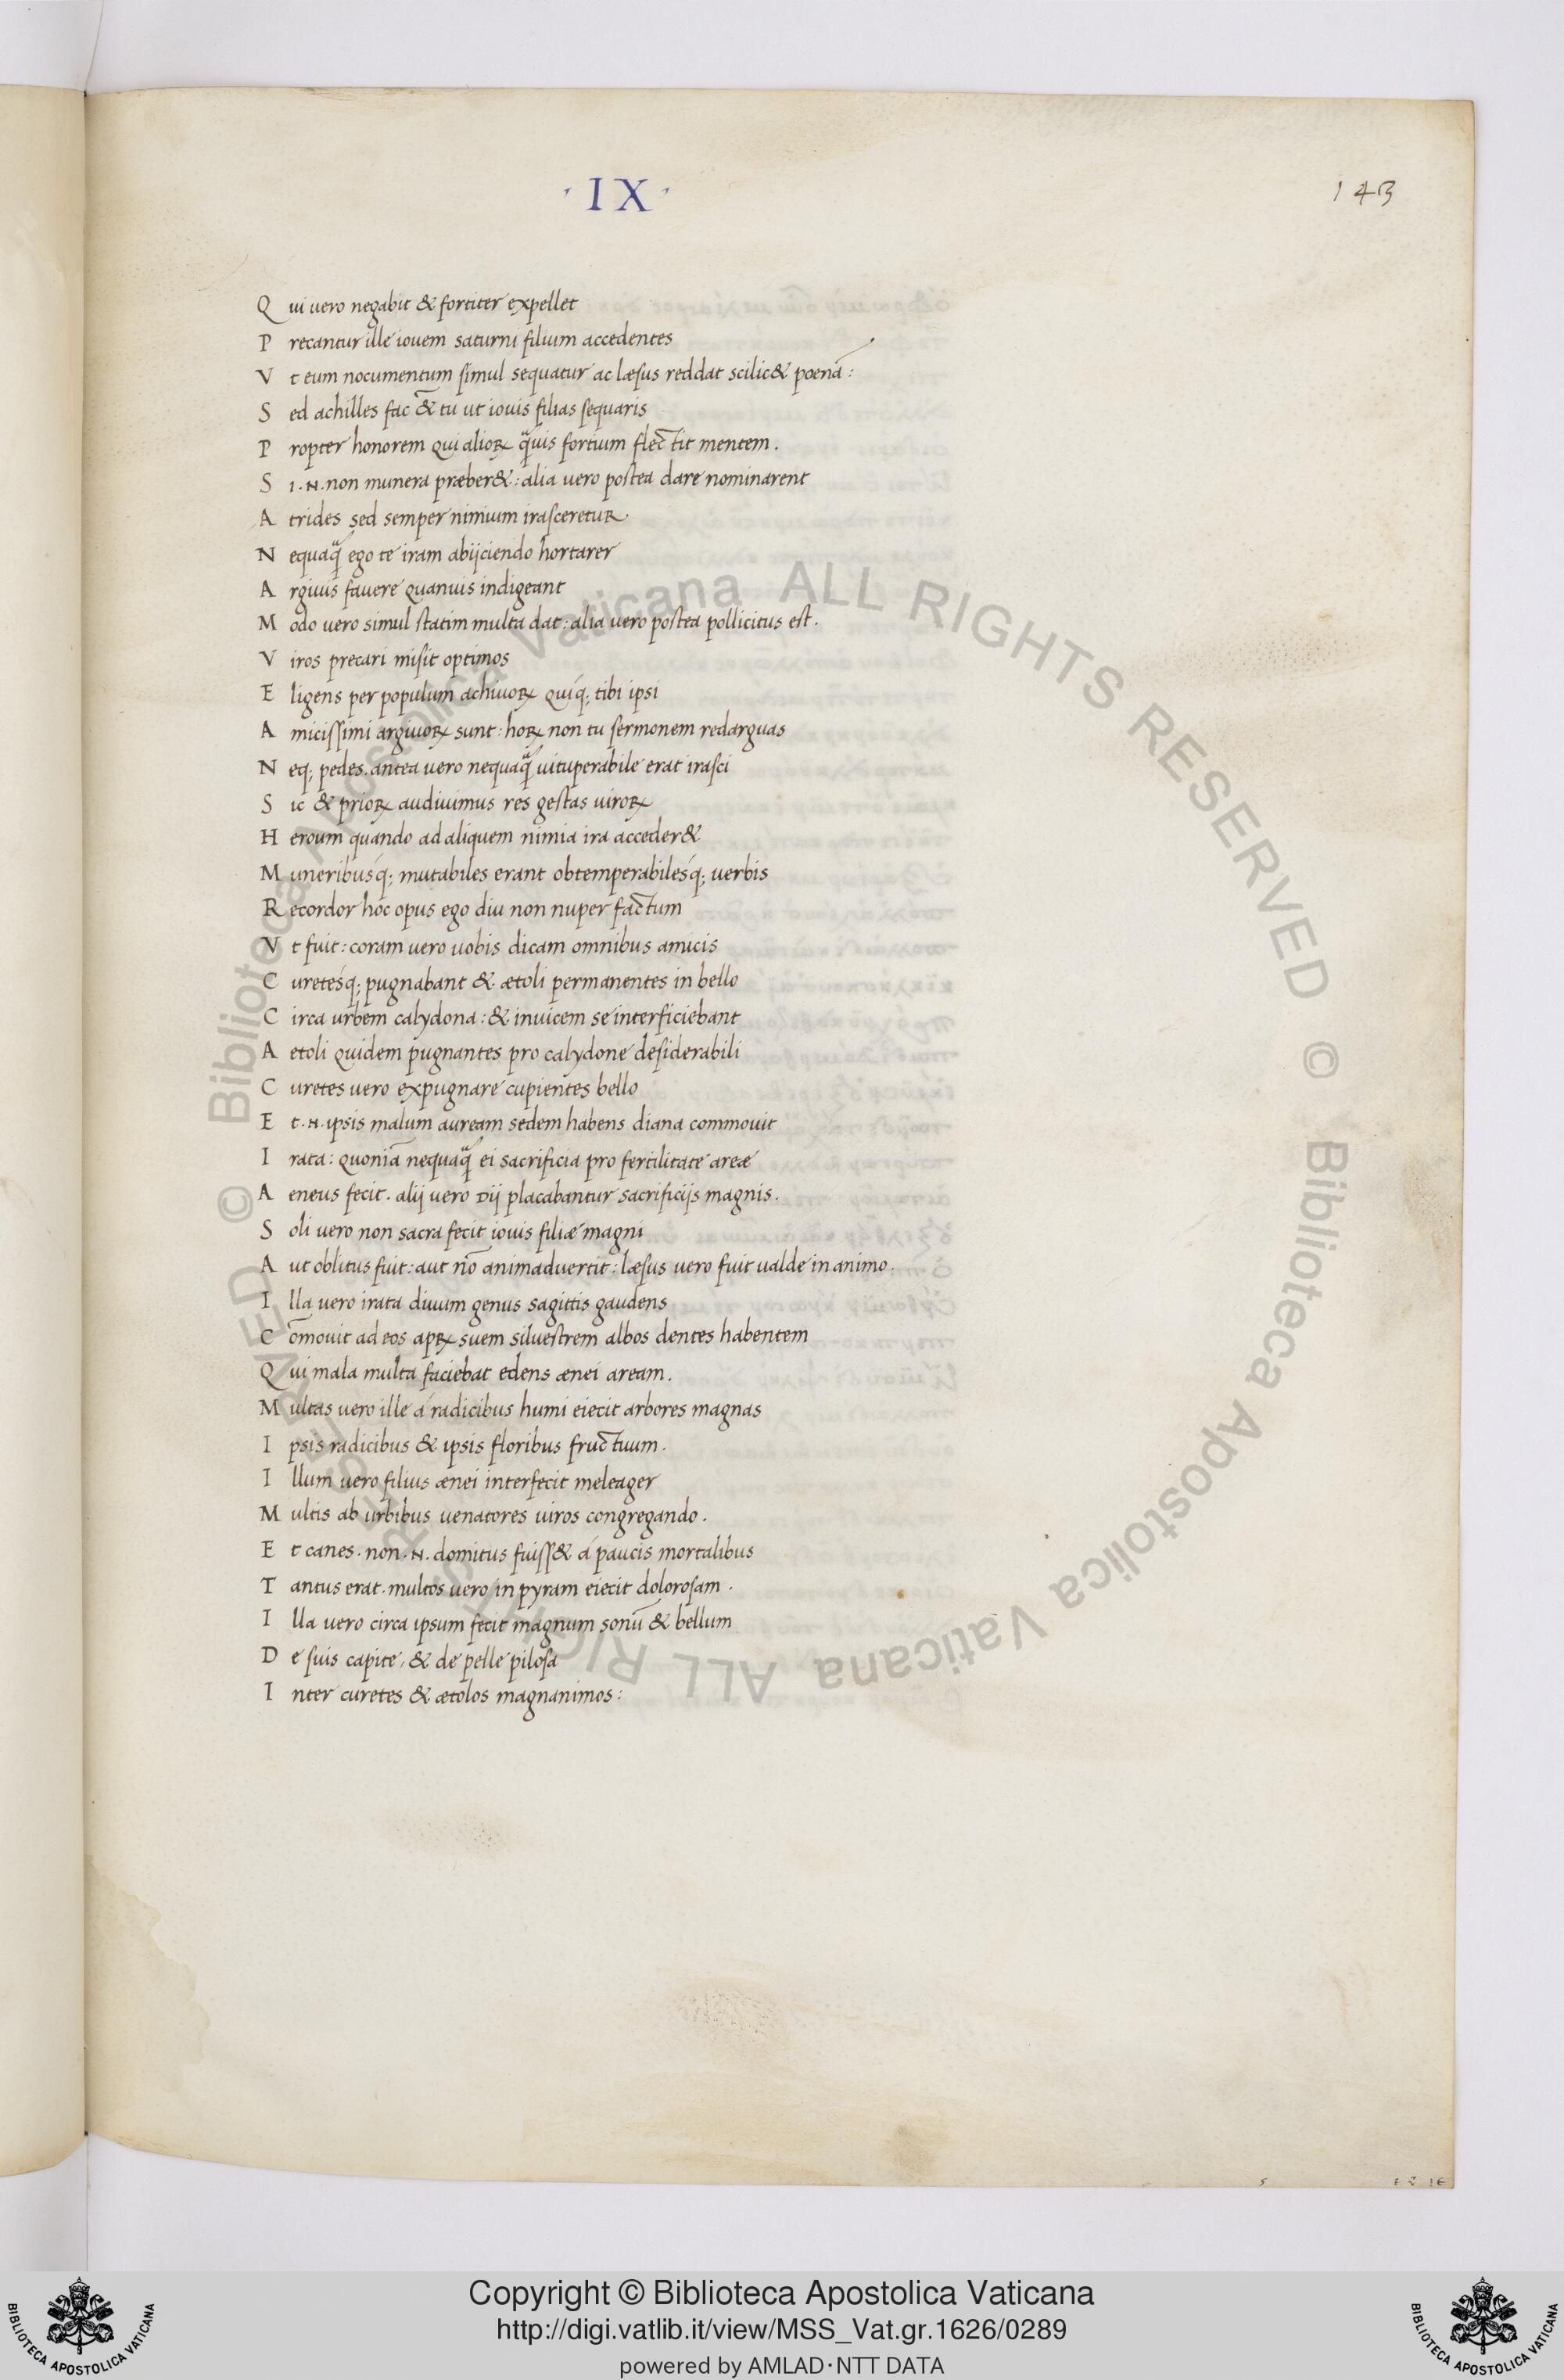 · IX ·
143
Qui uero negabit & fortiter expellet
Precantur ille iouem saturni filium accedentes
Vt eum nocumentum simul sequatur ac læsus reddat scilic& poenã :
Sed achilles fac & tu ut iouis filias sequaris
Propter honorem qui alioꝝ q̃uis fortium flectit mentem .
Si .N. non munera præber& : alia uero postea dare nominarent
Atrides sed semper nimium irasceretur .
Nequaq̃ ego te iram abijciendo hortarer
Argiuis fauere quanuis indigeant
Modo uero simul statim multa dat : alia uero postea pollicitus est .
Viros precari misit optimos
Eligens per populum achiuoꝝ quiq; tibi ipsi
Amicissimi argiuoꝝ sunt : hoꝝ non tu sermonem redarguas
Neq; pedes . antea uero nequaq̃ uituperabile erat irasci
Sic & prioꝝ audiuimus res gestas uiroꝝ
Heroum quando ad aliquem nimia ira acceder&
Muneribusq; mutabiles erant obtemperabilesq; uerbis
Recordor hoc opus ego diu non nuper factum
Vt fuit : coram uero uobis dicam omnibus amicis
Curetesq; pugnabant & ætoli permanentes in bello
Circa urbem calydona : & inuicem se interficiebant
Aetoli quidem pugnantes pro calydone desiderabili
Curetes uero expugnare cupientes bello
Et .N. ipsis malum auream sedem habens diana commouit
Irata : quoniã nequaq̃ ei sacrificia pro fertilitate areæ
Aeneus fecit . alij uero Dij placabantur sacrificijs magnis .
Soli uero non sacra fecit iouis filiæ magni
Aut oblitus fuit : aut nõ animaduertit : læsus uero fuit ualde in animo .
Illa uero irata diuum genus sagittis gaudens
Cõmouit ad eos apꝝ suem siluestrem albos dentes habentem
Qui mala multa faciebat edens ænei aream .
Multas uero ille á radicibus humi eiecit arbores magnas
Ipsis radicibus & ipsis floribus fructuum .
Illum uero filius ænei interfecit meleager
Multis ab urbibus uenatores uiros congregando .
Et canes . non .N. domitus fuiss& á paucis mortalibus
Tantus erat . multos uero in pyram eiecit dolorosam .
Illa uero circa ipsum fecit magnum sonũ & bellum
De suis capite , & de pelle pilosa
Inter curetes & ætolos magnanimos :
© Biblioteca Apostolica Vaticana ALL RIGHTS RESERVED © Biblioteca Apostolica Vaticana ALL RIGHTS RESERVED
Copyright © Biblioteca Apostolica Vaticana
http://digi.vatlib.it/view/MSS_Vat.gr.1626/0289
powered by AMLAD·NTT DATA
BIBLIOTECA APOSTOLICA VATICANA
BIBLIOTECA APOSTOLICA VATICANA